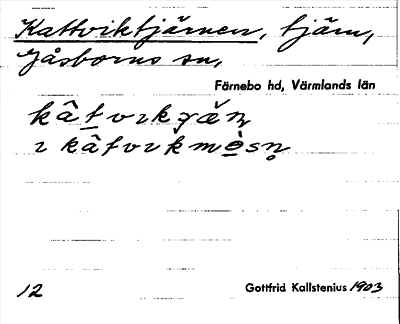 Kattviktjärnen, tjärn,
Gåsborns sn,
Färnebo hd, Värmlands län
12
Gottfrid Kallstenius 1903